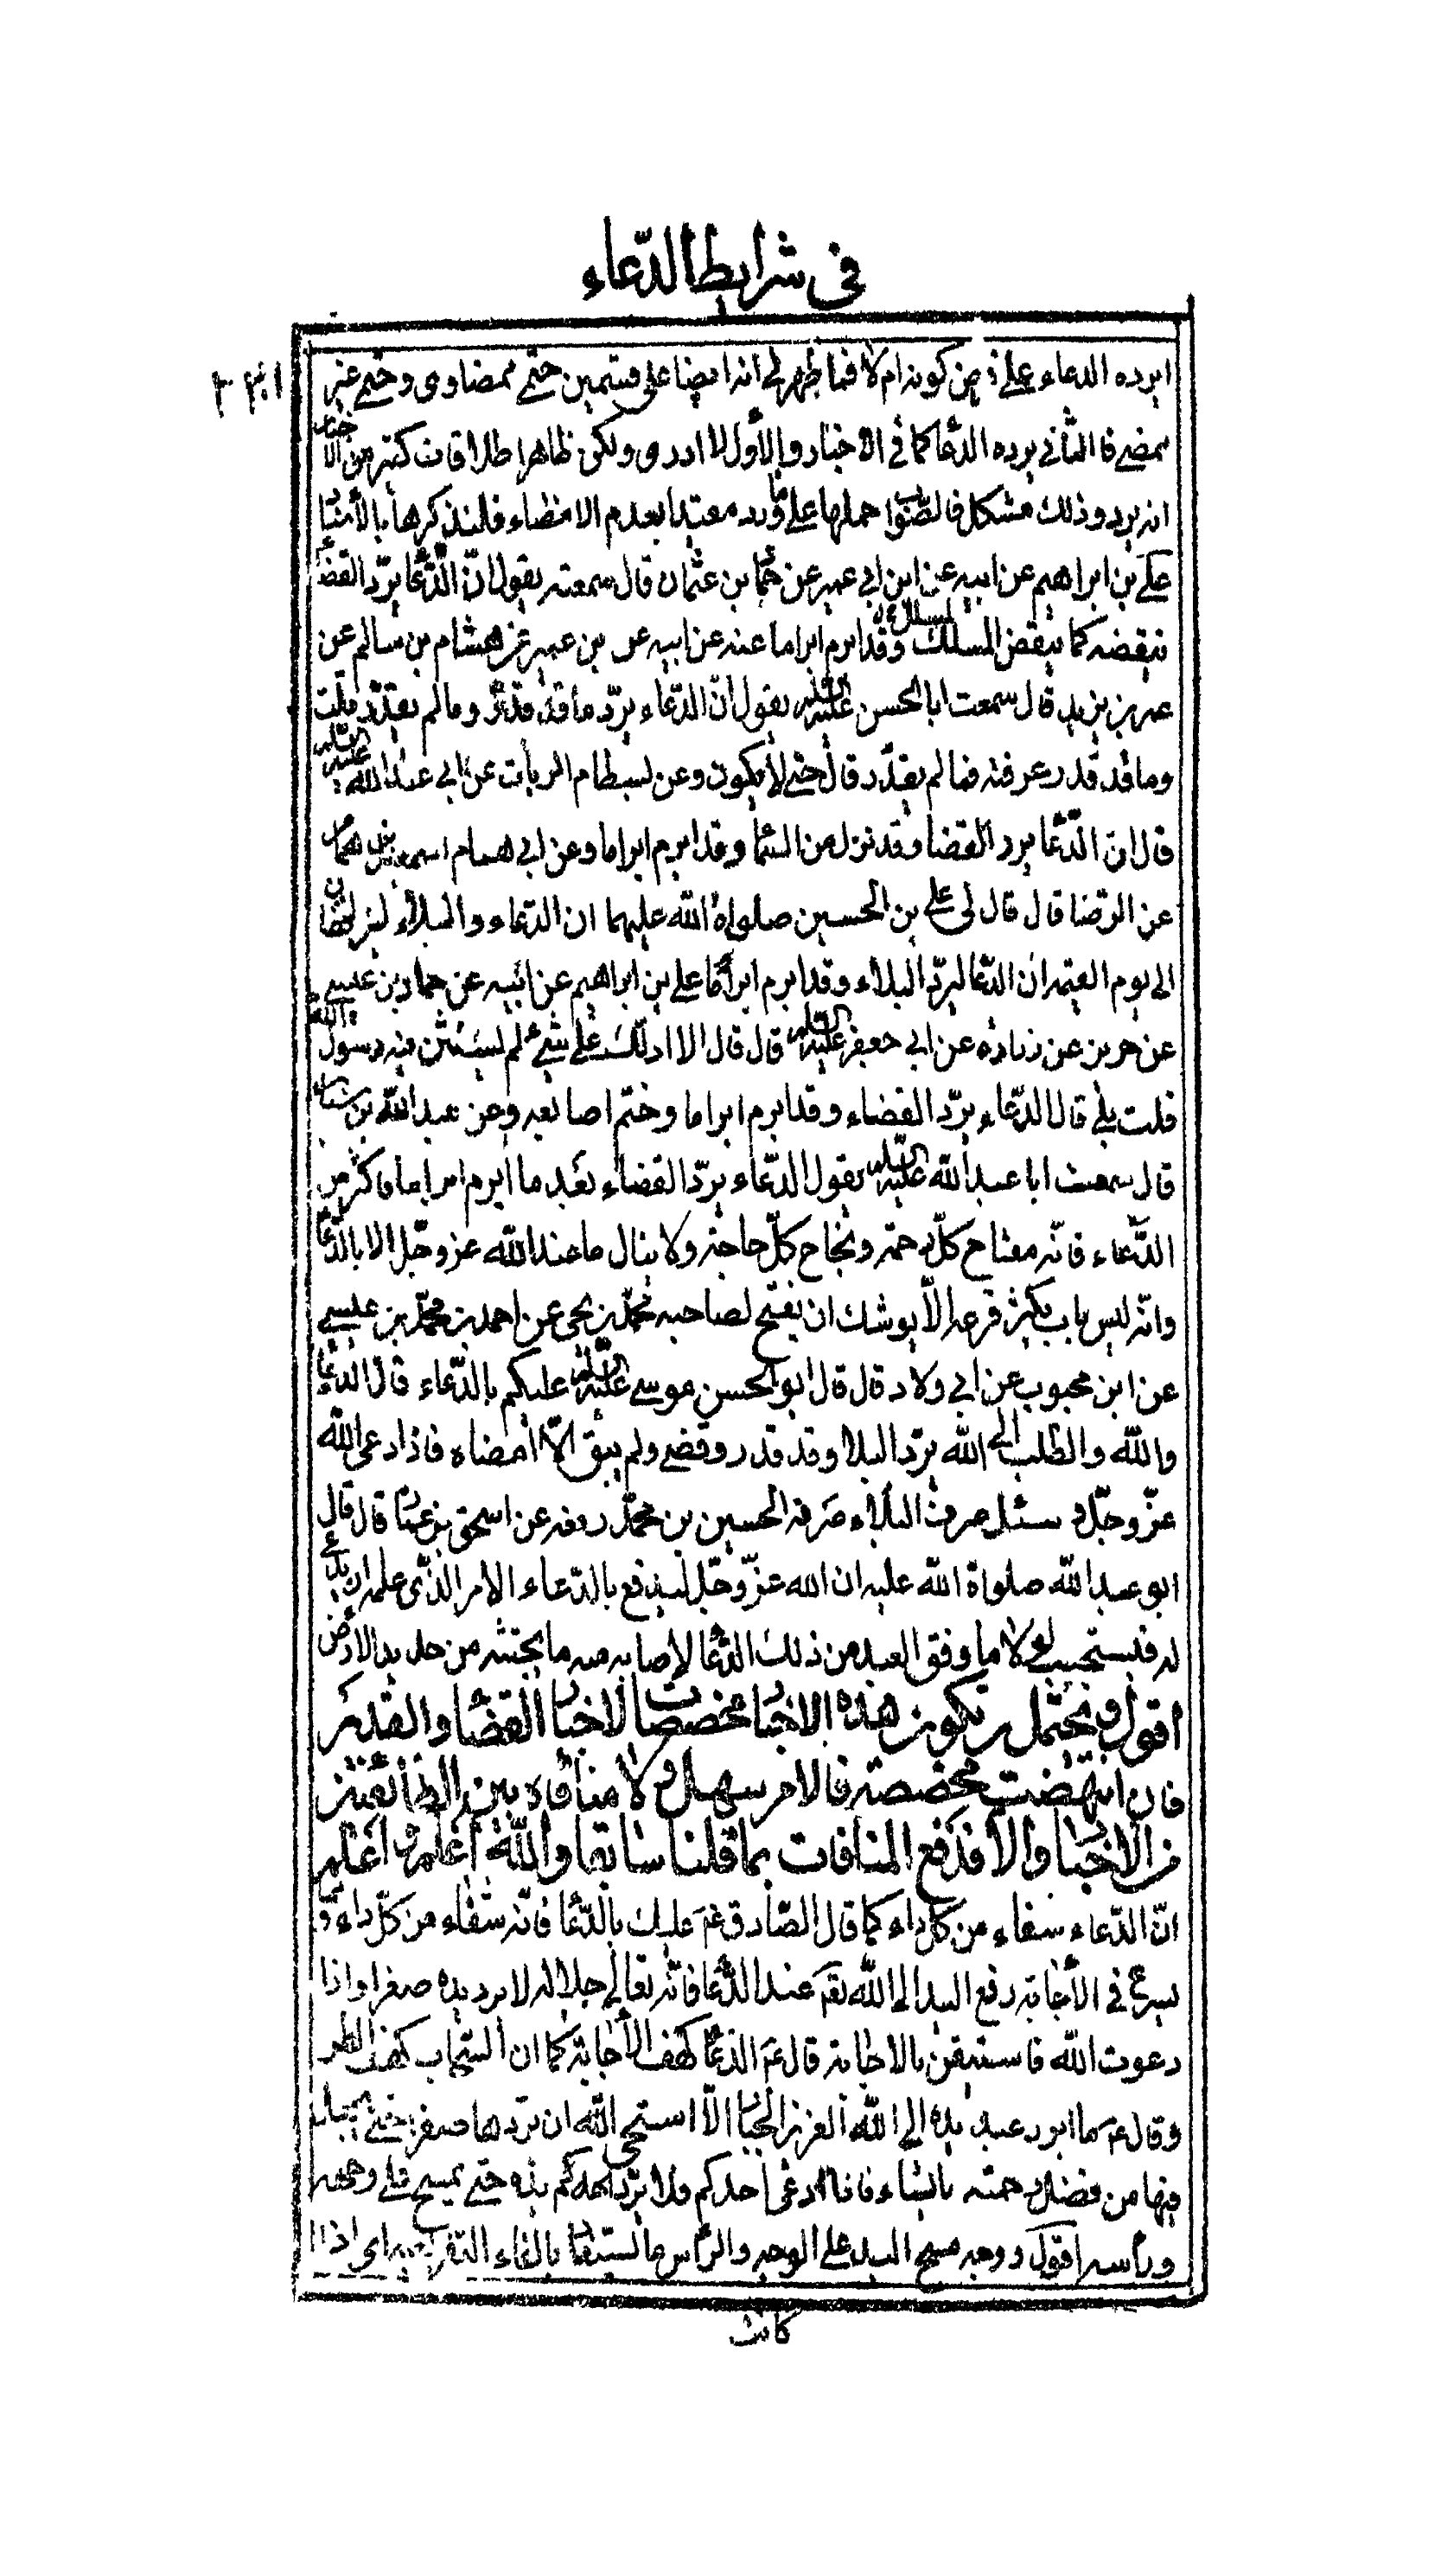 فى شرايط الدّعاء
ايرده الدعاء على فرض كونه ام لا فما ظهر لى انه ايضا على قسمين حتمى ممضاوى وحتمى غير
ممضى فالثانى يرده الدّعا كما فى الاخبار والأول لا ادرى ولكن ظاهر اطلاقات كثير من الاخبار
انه يرد وذلك مشكل فالصّواب حملها على ما ورد مقيدا بعدم الامضاء فلنذكرها بالأسناد
على بن ابراهيم عن ابيه عن ابن ابى عمير عن حماد بن عثمان قال سمعته يقول انّ الدّعا يردّ القضاء
ينقضه كما ينقض السلك وقد ابرم ابراما عنه عن ابيه عن بن عمير عن هشام بن سالم عن
عمر بن يزيد قال سمعت ابا الحسن عليه السلام يقول انّ الدّعاء يردّ ما قد قدّر وما لم يقدّر قلت
وما قد قدر عرفته فما لم يقدّر قال حتى لا يكون وعن بسطام الزيات عن ابى عبد الله عليه السلام
قال انّ الدّعا يرد القضا وقد نزل من السّما وقد ابرم ابراما وعن ابى همام اسمعيل بن همام
عن الرضا قال قال لى على بن الحسين صلواة الله عليهما ان الدّعاء والبلاء ليترافقان
الى يوم القيمة ان الدّعا ليردّ البلاء وقد ابرم ابراما على بن ابراهيم عن ابيه عن حماد بن عيسى
عن حريز عن زرارة عن ابى جعفر عليه السلام قال قال الا ادلّك على شئ لم يستثن فيه رسول الله
قلت بلى قال الدّعاء يردّ القضاء وقد ابرم ابراما وضمّ اصابعه وعن عبد الله بن سنان
قال سمعت ابا عبد الله عليه السلام يقول الدّعاء يردّ القضاء بعد ما ابرم ابراما فاكثر من
الدّعاء فانّه مفتاح كلّ رحمة ونجاح كلّ حاجة ولا ينال ما عند الله عز وجّل الا بالدّعا
وانّه ليس باب يكثر قرعه الّا يوشك ان يفتح لصاحبه محمّد بن يحيى عن احمد بن محمّد بن عيسى
عن ابن محبوب عن ابى ولاد قال قال ابو الحسن موسى عليه السلام عليكم بالدّعاء قال الدعاء
والله والطلب الى الله يردّ البلا وقد قدر وقضى ولم يبق الّا امضاه فاذا دعى الله
عزّ وجّل وسئل صرف البلاء صرفه الحسين بن محمّد رفعه عن اسحق بن عمّار قال قال
ابو عبد الله صلواة الله عليه ان الله عزّ وجّل ليدفع بالدّعاء الامر الذّى علمه ان يدعى
له فيستجيب ولولا ما وفق العبد من ذلك الدّعا لأصابه منه ما يجتثه من جديد الارض
اقول ويحتمل ان يكون هذه الاخبار مخصصات لاخبار القضا والقدر
فان انتهضت مخصصة فالامر سهل ولا منافاه بين الطائفتين
من الاخبار والّا فدفع المنافات بما قلنا سابقا والله اعلم واعلم
انّ الدّعاء شفاء من كل داء كما قال الصّادق ع عليك بالدّعا فانّه شفاء من كلّ داء و
يسرع فى الاجابة رفع اليد الى الله تع عند الدّعا فانّه تعالى جلاله لا يرد يده صفرا واذا
دعوت الله فاستيقن بالاجابة قال ع الدعا كهف الأجابة كما ان السّحاب كهف المطر
وقال ع ما ابرد عبد يده الى الله العزيز الجبّار الّا استحى الله ان يردها صفرا حتى يجعل
فيها من فضل رحمته ما يشاء فاذا دعى احدكم فلا يردّ يده حتى يمسح على وجهه
ورأسه اقول ووجه مسح اليد على الوجه والرأس ما يستفاد بالقاء التفر اذا
كانت